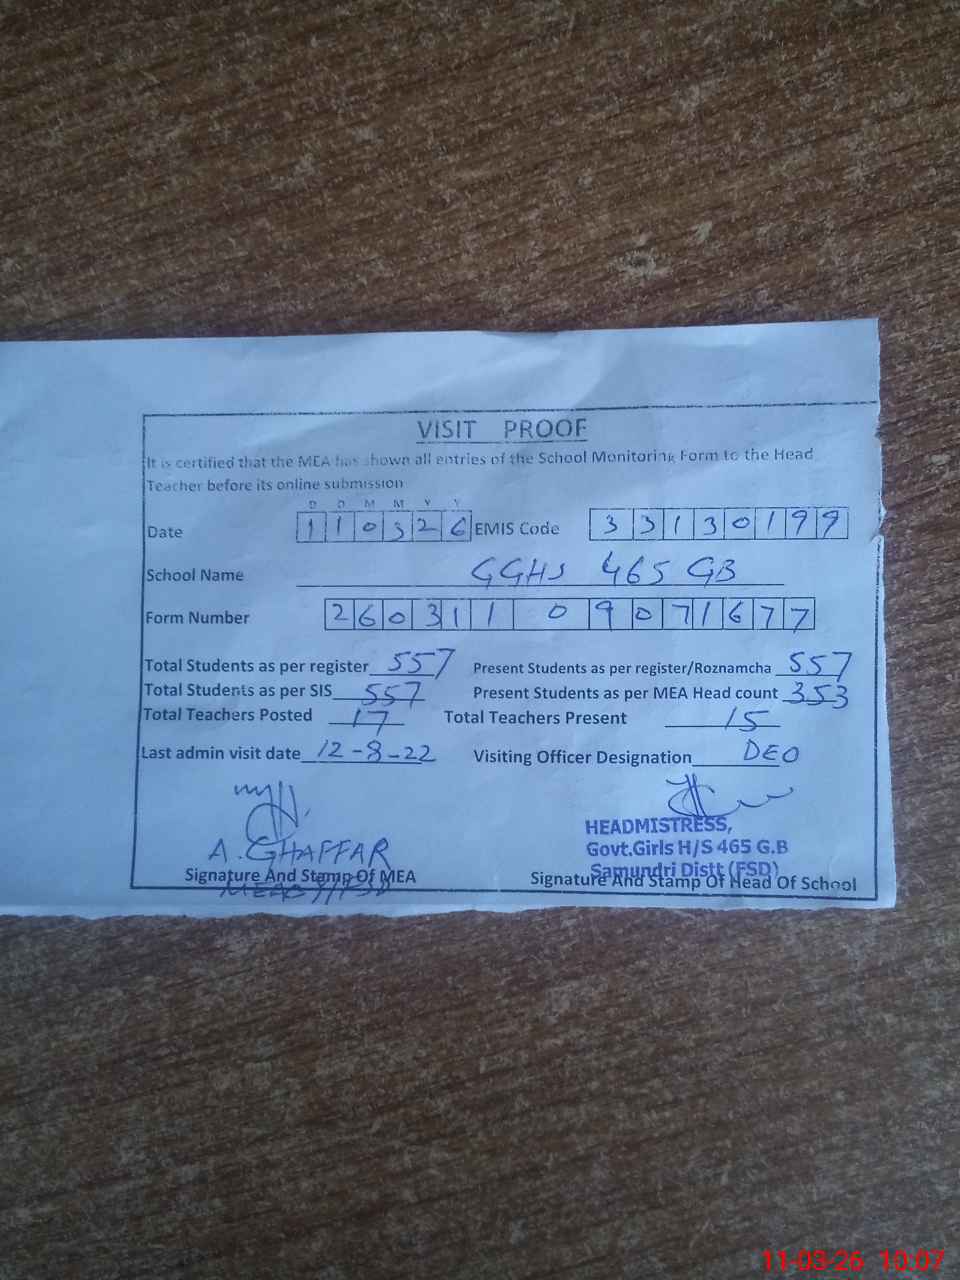 VISIT PROOF
It is certified that the MEA has shown all entries of the School Monitoring Form to the Head
Teacher before its online submission
D D M M Y Y
Date 1 1 0 3 2 6 EMIS Code 3 3 1 3 0 1 9 9
School Name GGHS 465 GB
Form Number 2 6 0 3 1 1 0 9 0 7 1 6 7 7
Total Students as per register 557 Present Students as per register/Roznamcha 557
Total Students as per SIS 557 Present Students as per MEA Head count 353
Total Teachers Posted 17 Total Teachers Present 15
Last admin visit date 12-8-22 Visiting Officer Designation DEO
A. GHAFFAR
HEADMISTRESS,
Govt.Girls H/S 465 G.B
Samundri Distt (FSD)
Signature And Stamp Of MEA Signature And Stamp Of Head Of School
11-03-26 10:07